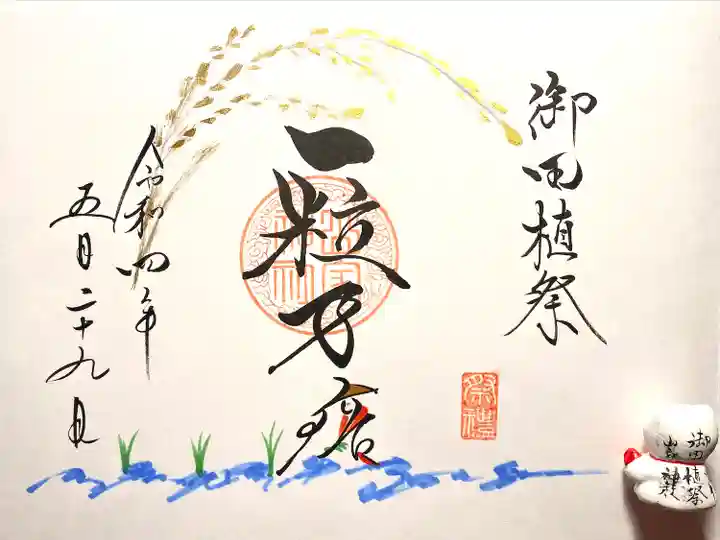 御田植祭
一粒万倍
令和四年
五月二十九日
祭禮
御田植祭